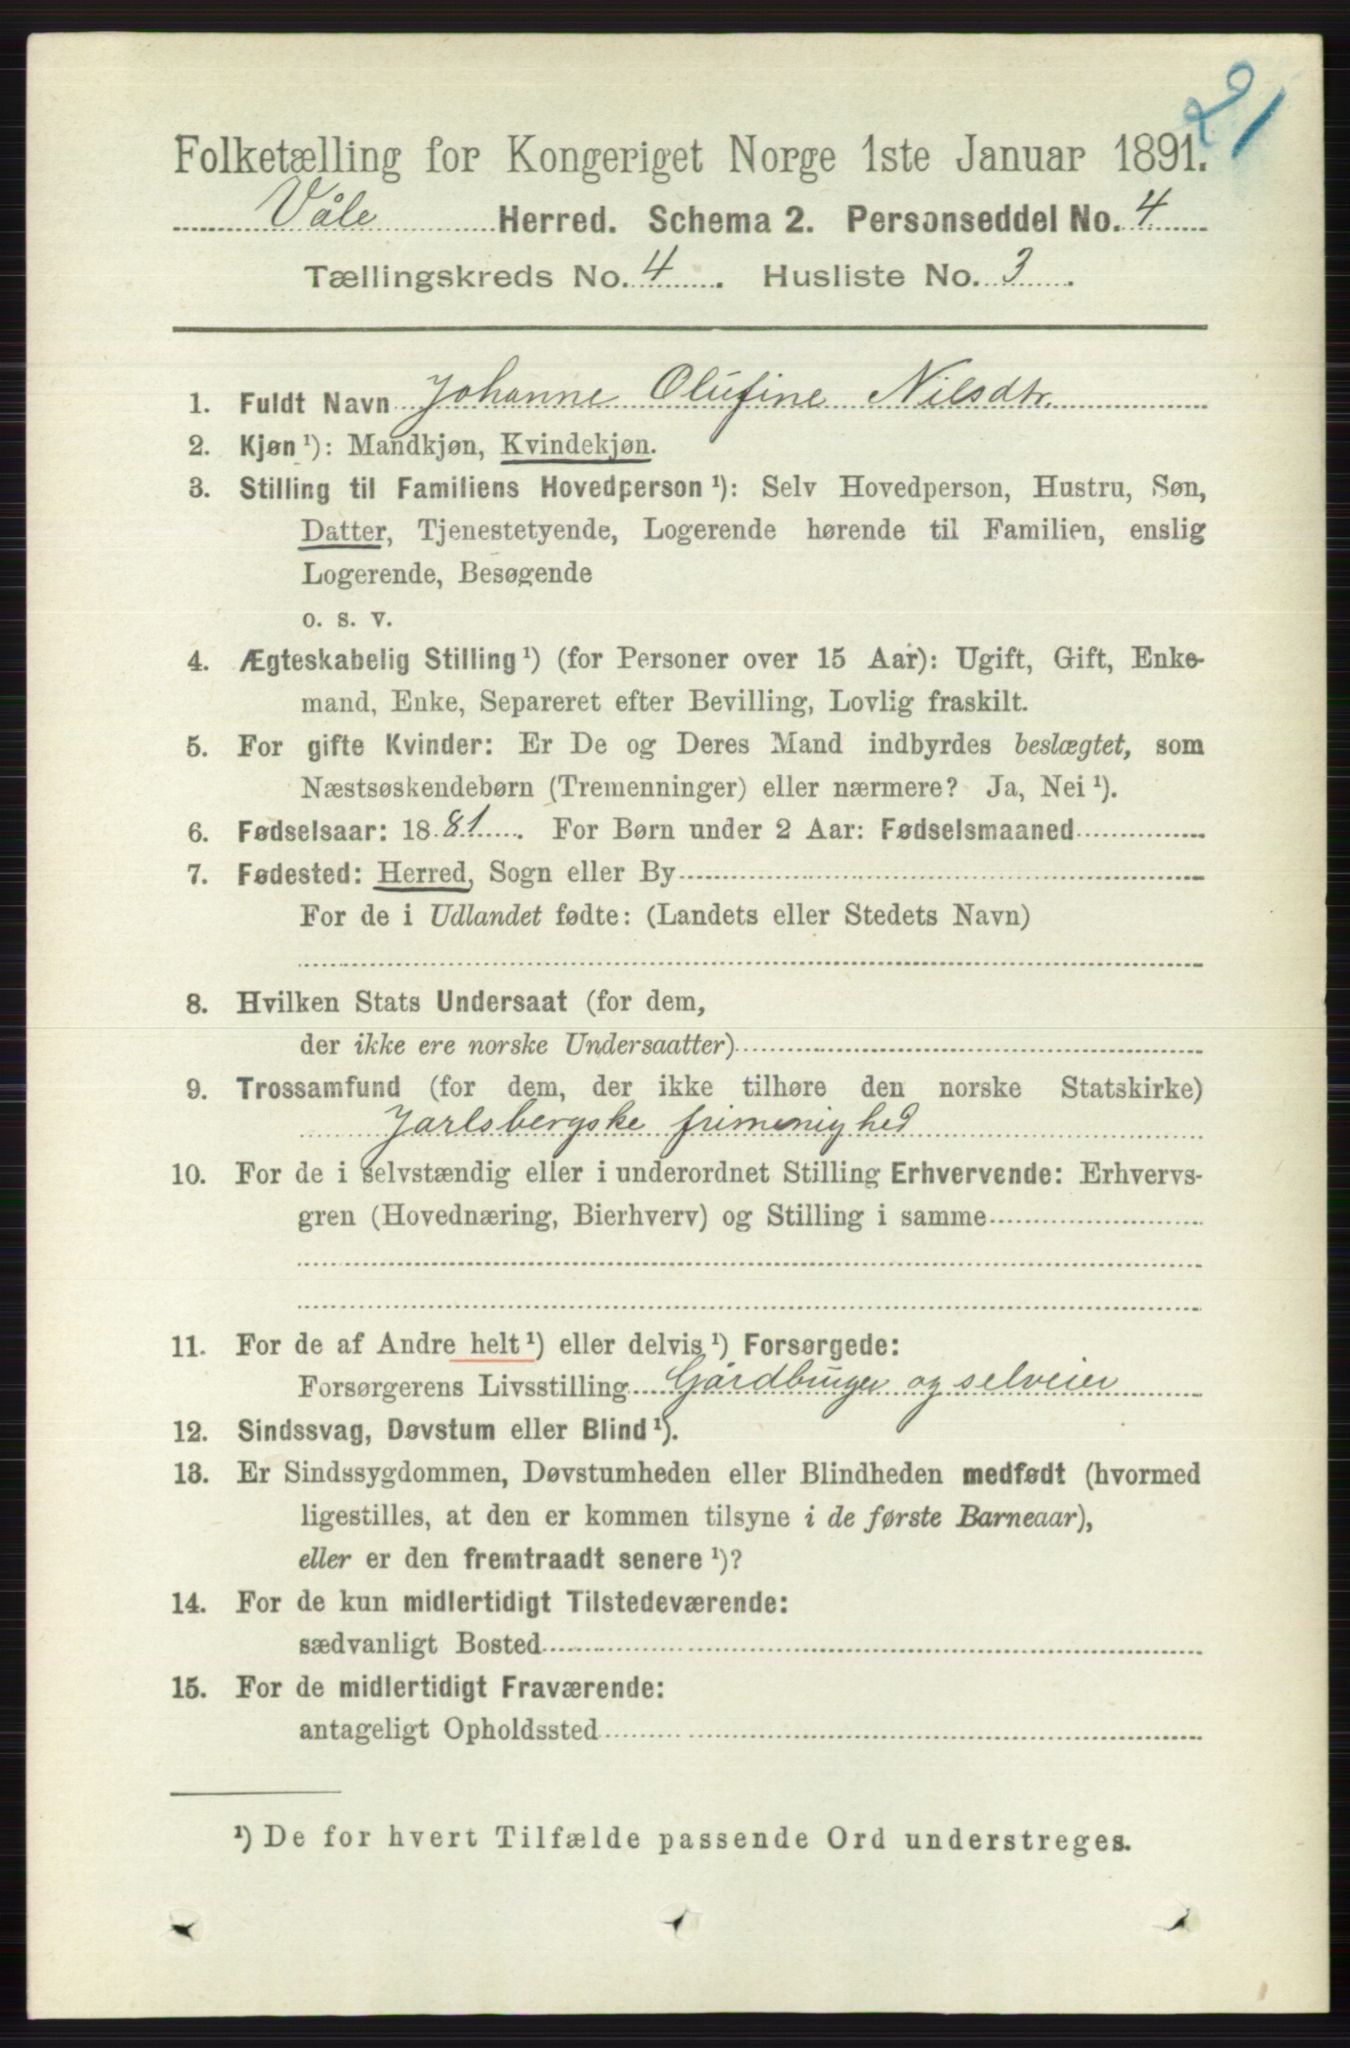 21
Folketælling for Kongeriget Norge 1ste Januar 1891.
Våle Herred. Schema 2. Personseddel No. 4
Tællingskreds No. 4. Husliste No. 3.
1. Fuldt Navn Johanne Olufine Nilsdtr.
2. Kjøn ¹): Mandkjøn, Kvindekjøn.
3. Stilling til Familiens Hovedperson ¹): Selv Hovedperson, Hustru, Søn,
Datter, Tjenestetyende, Logerende hørende til Familien, enslig
Logerende, Besøgende
o. s. v.
4. Ægteskabelig Stilling ¹) (for Personer over 15 Aar): Ugift, Gift, Enke-
mand, Enke, Separeret efter Bevilling, Lovlig fraskilt.
5. For gifte Kvinder: Er De og Deres Mand indbyrdes beslægtet, som
Næstsøskendebørn (Tremenninger) eller nærmere? Ja, Nei ¹).
6. Fødselsaar: 1881. For Børn under 2 Aar: Fødselsmaaned
7. Fødested: Herred, Sogn eller By
For de i Udlandet fødte: (Landets eller Stedets Navn)
8. Hvilken Stats Undersaat (for dem,
der ikke ere norske Undersaatter)
9. Trossamfund (for dem, der ikke tilhøre den norske Statskirke)
Jarlsbergske frimenighed
10. For de i selvstændig eller i underordnet Stilling Erhvervende: Erhvervs-
gren (Hovednæring, Bierhverv) og Stilling i samme
11. For de af Andre helt ¹) eller delvis ¹) Forsørgede:
Forsørgerens Livsstilling Gårdbruger og selveier
12. Sindssvag, Døvstum eller Blind ¹).
13. Er Sindssygdommen, Døvstumheden eller Blindheden medfødt (hvormed
ligestilles, at den er kommen tilsyne i de første Barneaar),
eller er den fremtraadt senere ¹)?
14. For de kun midlertidigt Tilstedeværende:
sædvanligt Bosted
15. For de midlertidigt Fraværende:
antageligt Opholdssted
¹) De for hvert Tilfælde passende Ord understreges.